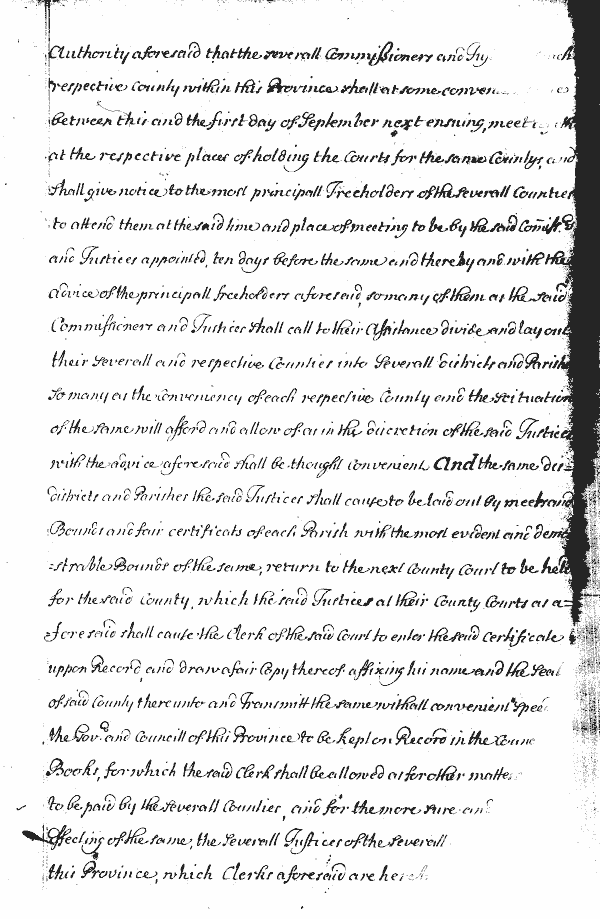 Authority aforesaid that the severall Commissioners and
respective County within this Province shall at some conven
between this and the first day of September next ensuing, meet
at the respective places of holding the Courts for the same Countys, and
shall give notice to the most principall Freeholders of the severall Counties
to attend them at the said time and place of meeting to be by the said
and Justices appointed, ten days before the same and thereby and with the
advice of the principall freeholders aforesaid, so many of them as the said
Commissioners and Justices shall call to their Assistance divide and lay out
their severall and respective Counties into Severall districts and Parishes
so many as the conveniency of each respective County and the scituation
of the same will afford and allow of as in the discretion of the said Justices
with the advice aforesaid shall be thought convenient And the same dis=
districts and Parishes the said Justices shall cause to be laid out by meets and
Bounds and fair certificats of each Parish with the most evident and demo
=strable Bounds of the same, return to the next County Court to be held
for the said County, which the said Justices at their County Courts as a=
=foresaid shall cause the Clerk of the said Court to enter the said certificate
uppon Record, and draw a fair Copy thereof affixing his name and the Seal
of said County thereunto and Transmitt the same with all convenient Spee
the Govr. and Councill of this Province to be kept on Record in the Counc
Books, for which the said Clerk shall be allowed as for other matte
to be paid by the severall Counties, and for the more sure and
effecting of the same, the severall Justices of the severall
this Province, which Clerks aforesaid are